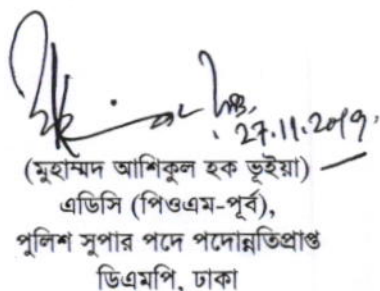 27.11.2019.
(মুহাম্মদ আশিকুল হক ভূইয়া)
এডিসি (পিওএম-পূর্ব),
পুলিশ সুপার পদে পদোন্নতিপ্রাপ্ত
ডিএমপি, ঢাকা